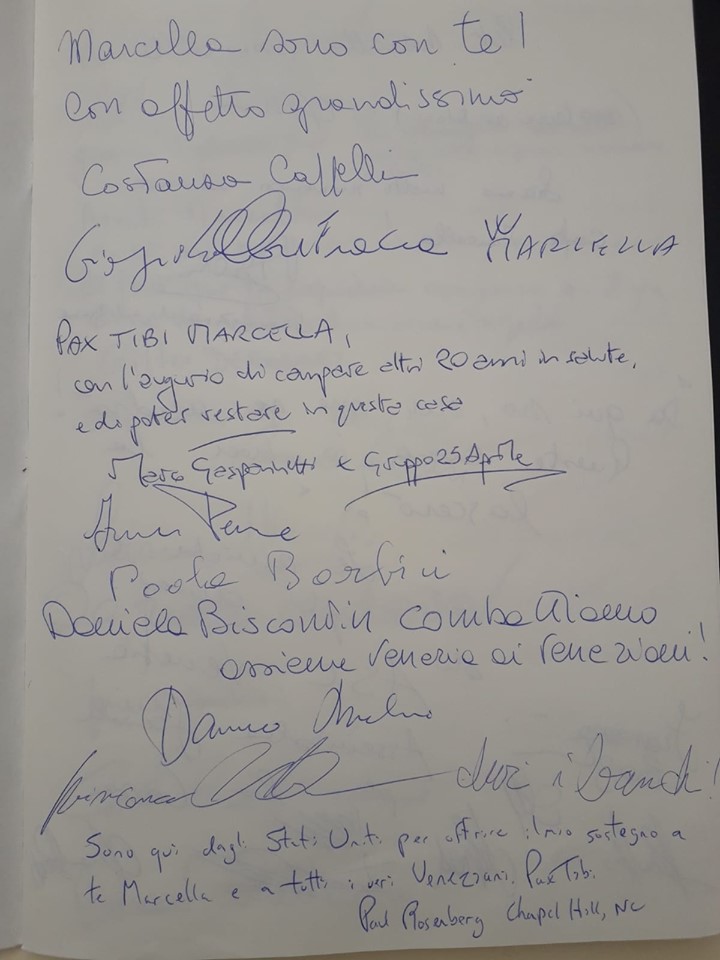 Marcella sono con te!
Con affetto grandissimo
Costanza
W MARCELLA
PAX TIBI MARCELLA,
con l'augurio di campare altri 20 anni in salute,
e di poter restare in questa casa
Marco Gasparinetti x Gruppo 25 Aprile
Paola Barbini
Daniela Biscontin combattiamo
assieme Venezia ai Veneziani!
Danilo
duri i banchi!
Sono qui dagli Stati Uniti per offrire il mio sostegno a
te Marcella e a tutti i veri Veneziani. Pax Tibi.
Paul Rosenberg Chapel Hill, NC